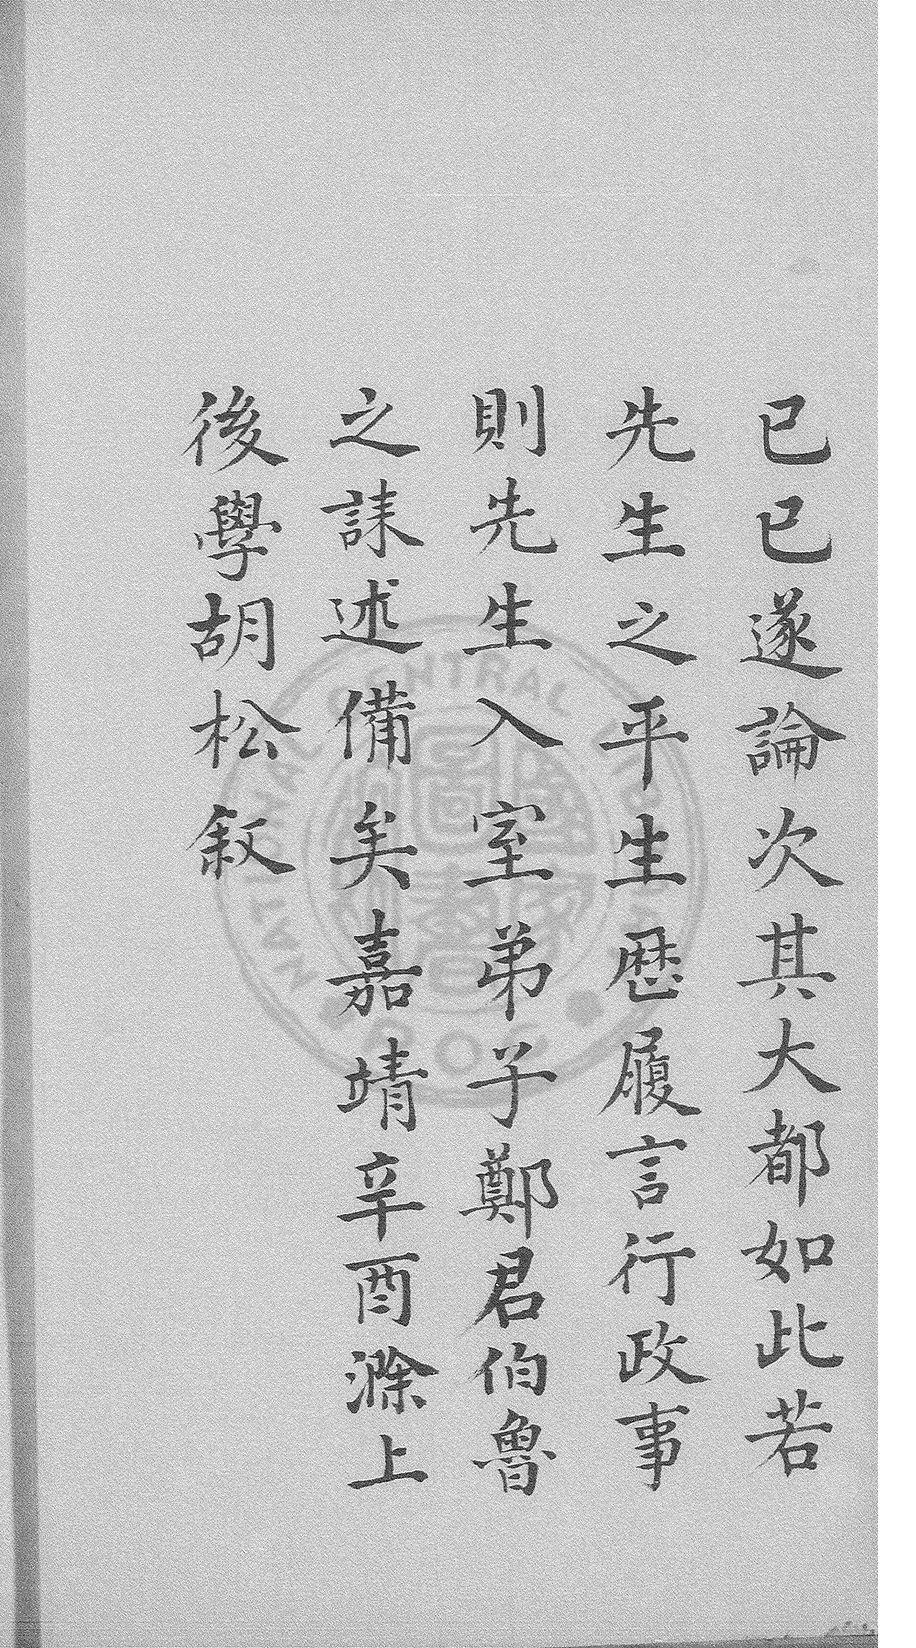 已已遂論次其大都如此若
先生之平生歷履言行政事
則先生入室弟子鄭君伯魯
之誄述備矣嘉靖辛酉滁上
後學胡松叙
NATIONAL CENTRAL LIBRARY
ROC
國家圖書